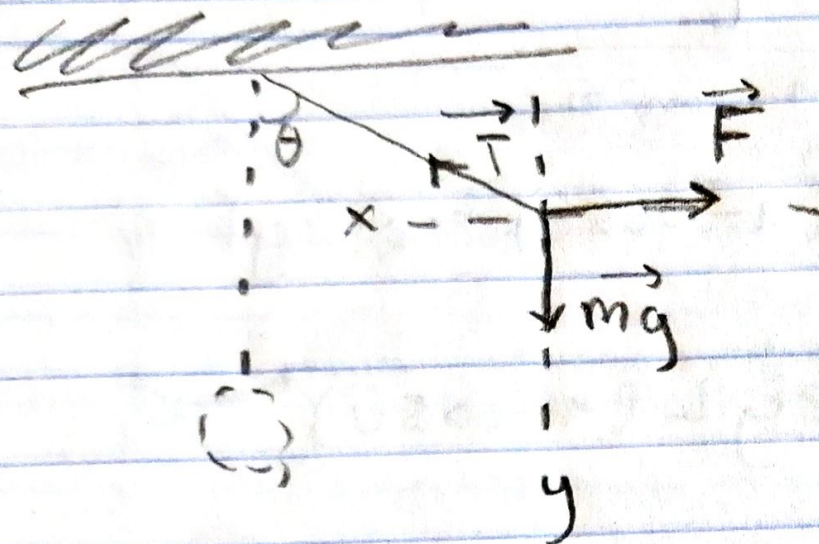 θ
T⃗
F⃗
x
m⃗g
y